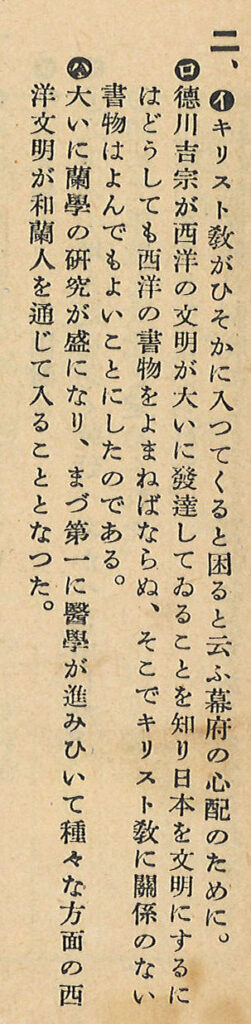 二、㋑キリスト敎がひそかに入つてくると困ると云ふ幕府の心配のために。
㋺德川吉宗が西洋の文明が大いに發達してゐることを知り日本を文明にするに
はどうしても西洋の書物をよまねばならぬ、そこでキリスト敎に關係のない
書物はよんでもよいことにしたのである。
㋩大いに蘭學の硏究が盛になり、まづ第一に醫學が進みひいて種々な方面の西
洋文明が和蘭人を通じて入ることとなつた。